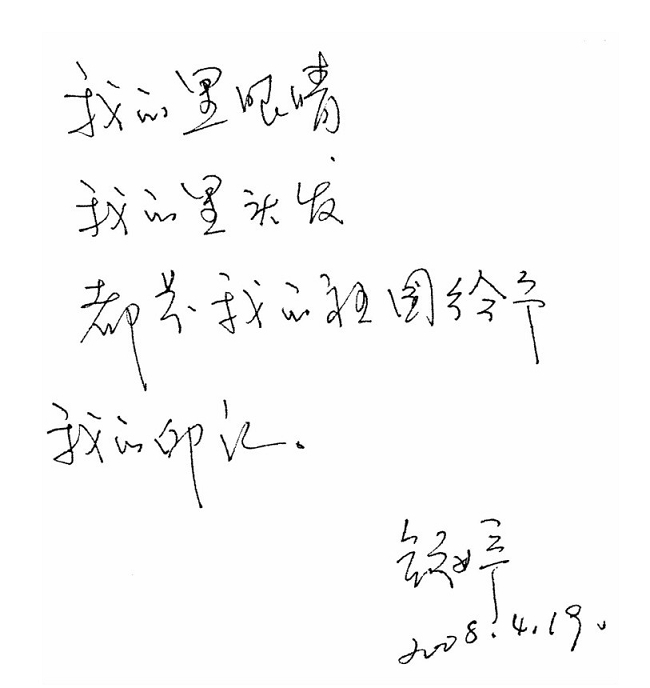 我的黑眼睛
我的黑头发
都是我的祖国给予
我的印记.
2008.4.19.